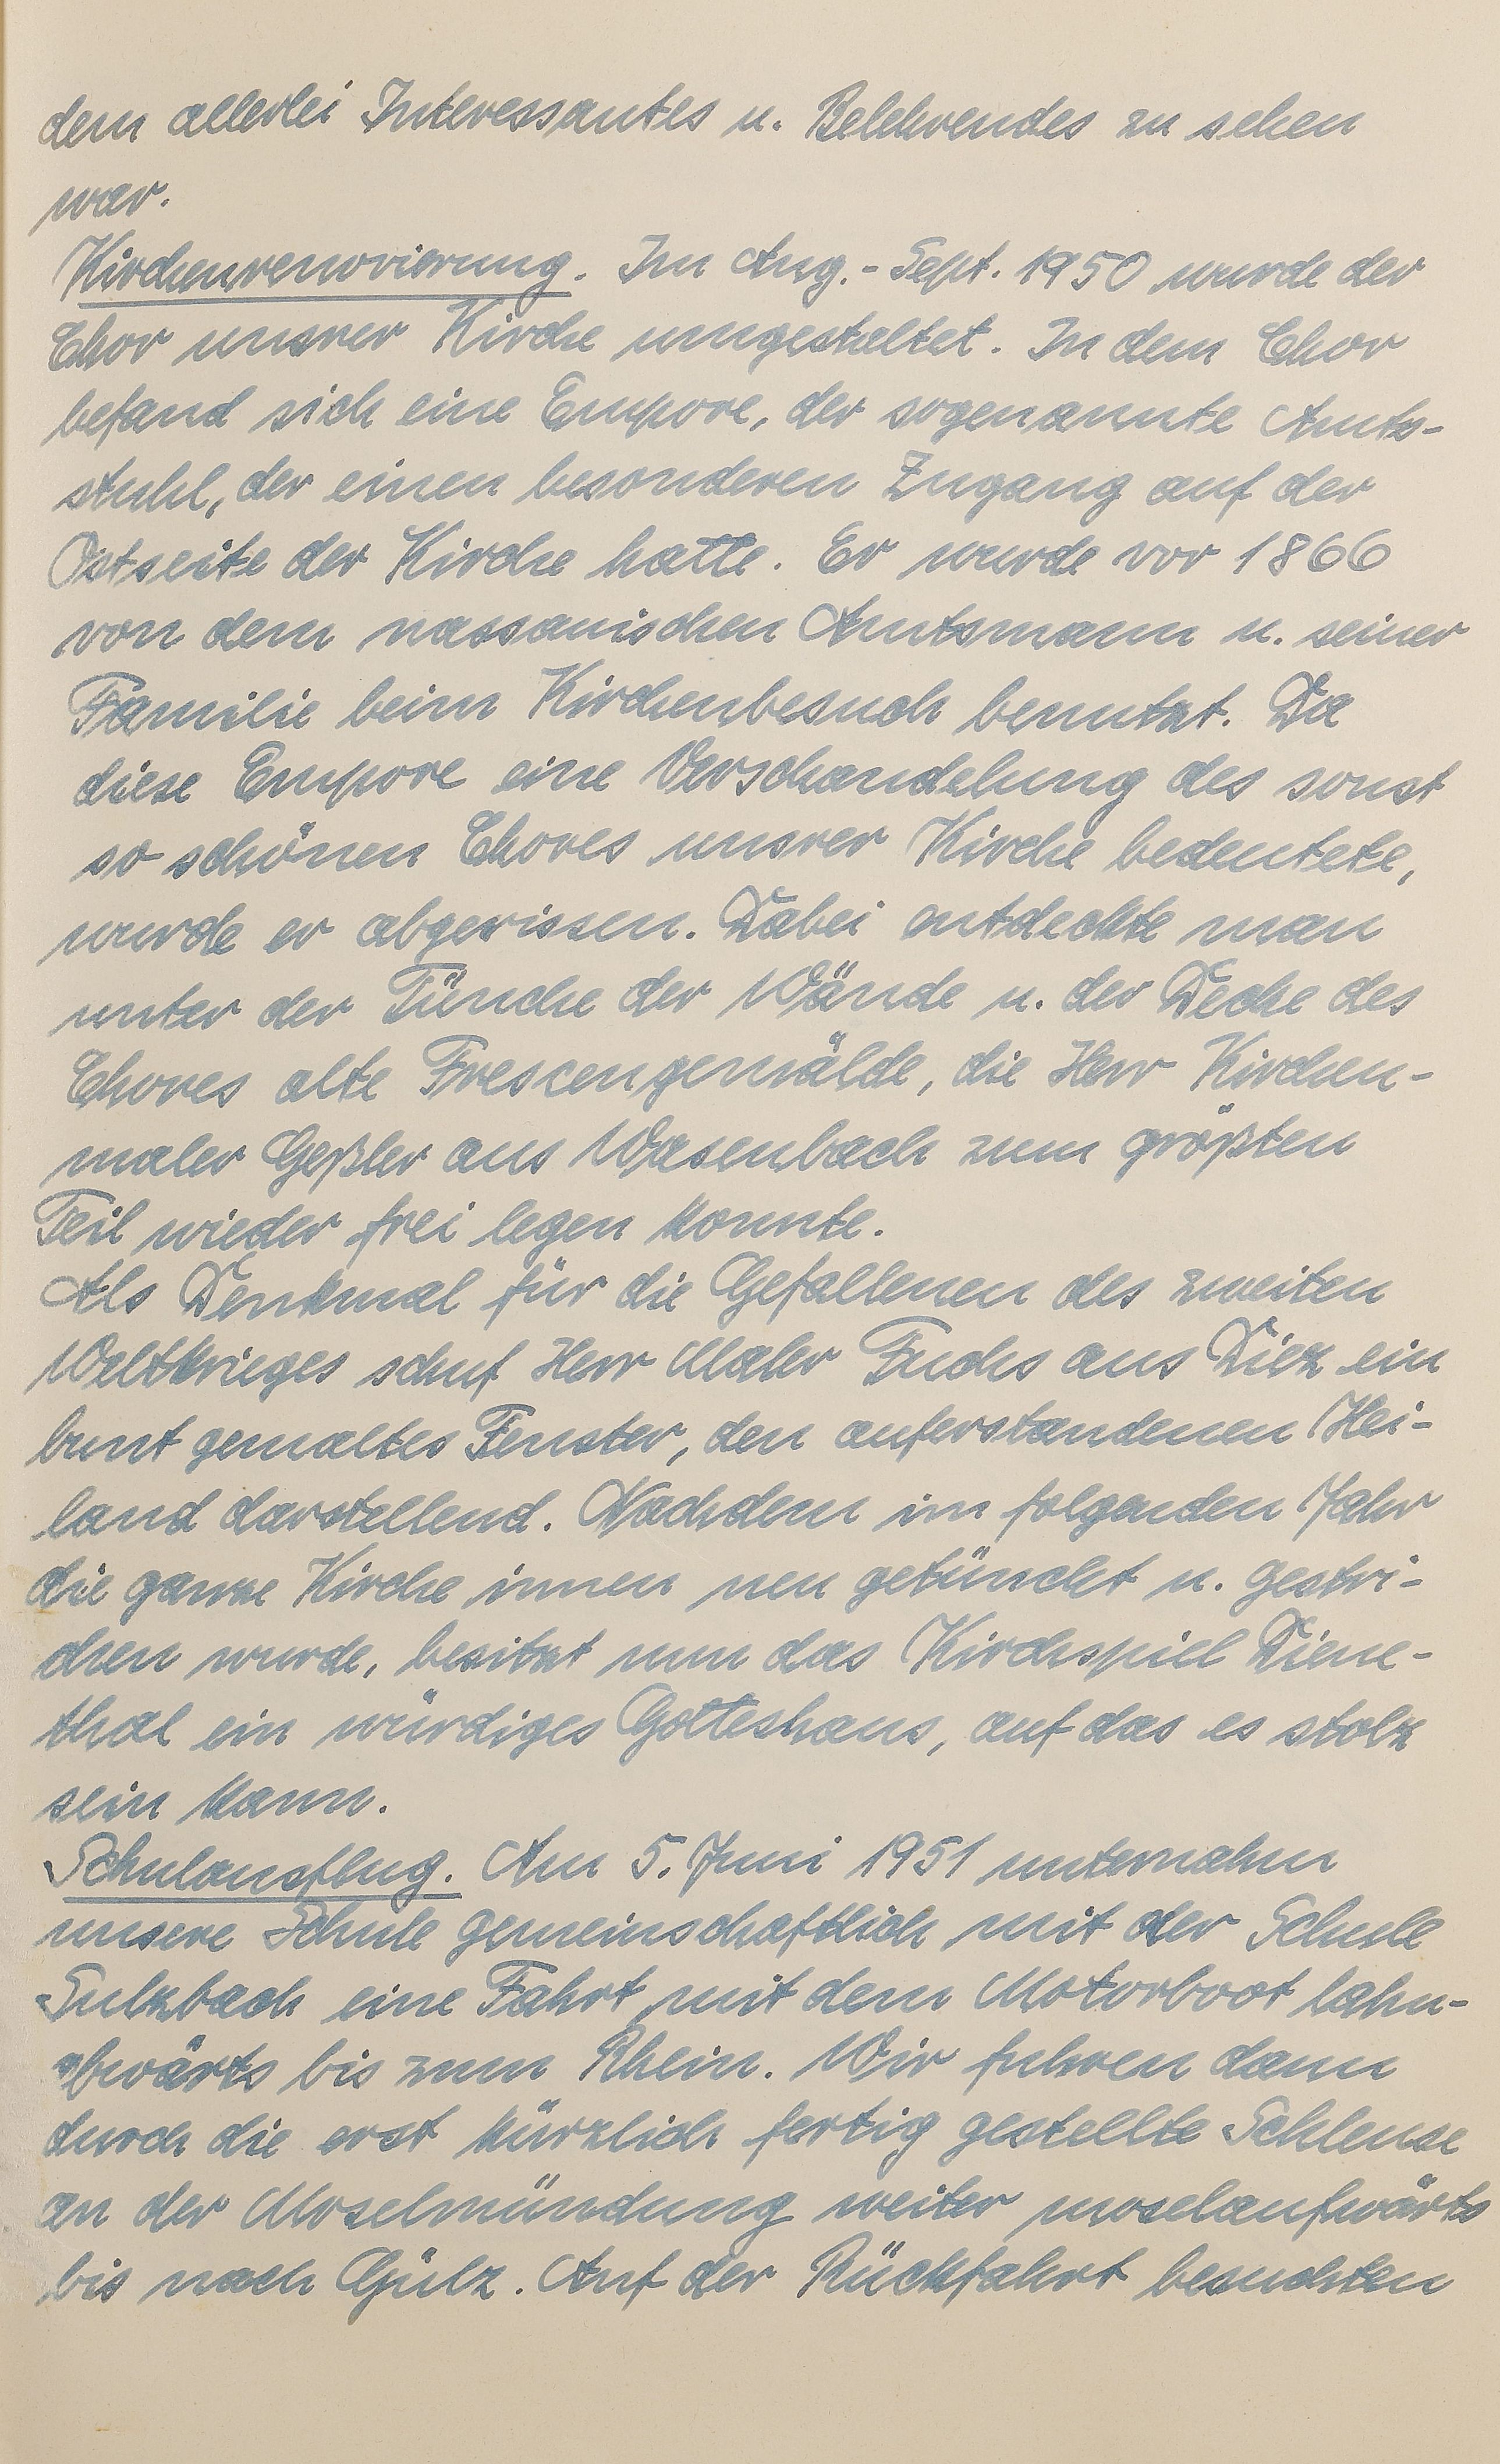 dem allerlei Interessantes u. Belehrendes zu sehen
war.
Kirchenrenovierung. Im Aug.-Sept. 1950 wurde der
Chor unsrer Kirche umgestaltet. In dem Chor
befand sich eine Empore, der sogenannte Amts-
stuhl, der einen besonderen Zugang auf der
Ostseite der Kirche hatte. Er wurde vor 1866
von dem nassauischen Amtsmann u. seiner
Familie beim Kirchenbesuch benutzt. Da
diese Empore eine Verschandelung des sonst
so schönen Chores unsrer Kirche bedeutete,
wurde er abgerissen. Dabei entdeckte man
unter der Tünche der Wände u. der Decke des
Chores alte Frescengemälde, die Herr Kirchen-
maler Geßler aus Wasenbach zum größten
Teil wieder frei legen konnte.
Als Denkmal für die Gefallenen des zweiten
Weltkrieges schuf Herr Maler Fuchs aus Diez ein
bunt gemaltes Fenster, den auferstandenen Hei-
land darstellend. Nachdem im folgenden Jahr
die ganze Kirche innen neu getüncht u. gestri-
chen wurde, besitzt nun das Kirchspiel Diene-
thal ein würdiges Gotteshaus, auf das es stolz
sein kann.
Schulausflug. Am 5. Juni 1951 unternahm
unsere Schule gemeinschaftlich mit der Schule
Sulzbach eine Fahrt mit dem Motorboot lahn-
abwärts bis zum Rhein. Wir fuhren dann
durch die erst kürzlich fertig gestellte Schleuse
an der Moselmündung weiter moselaufwärts
bis nach Gülz. Auf der Rückfahrt besuchten